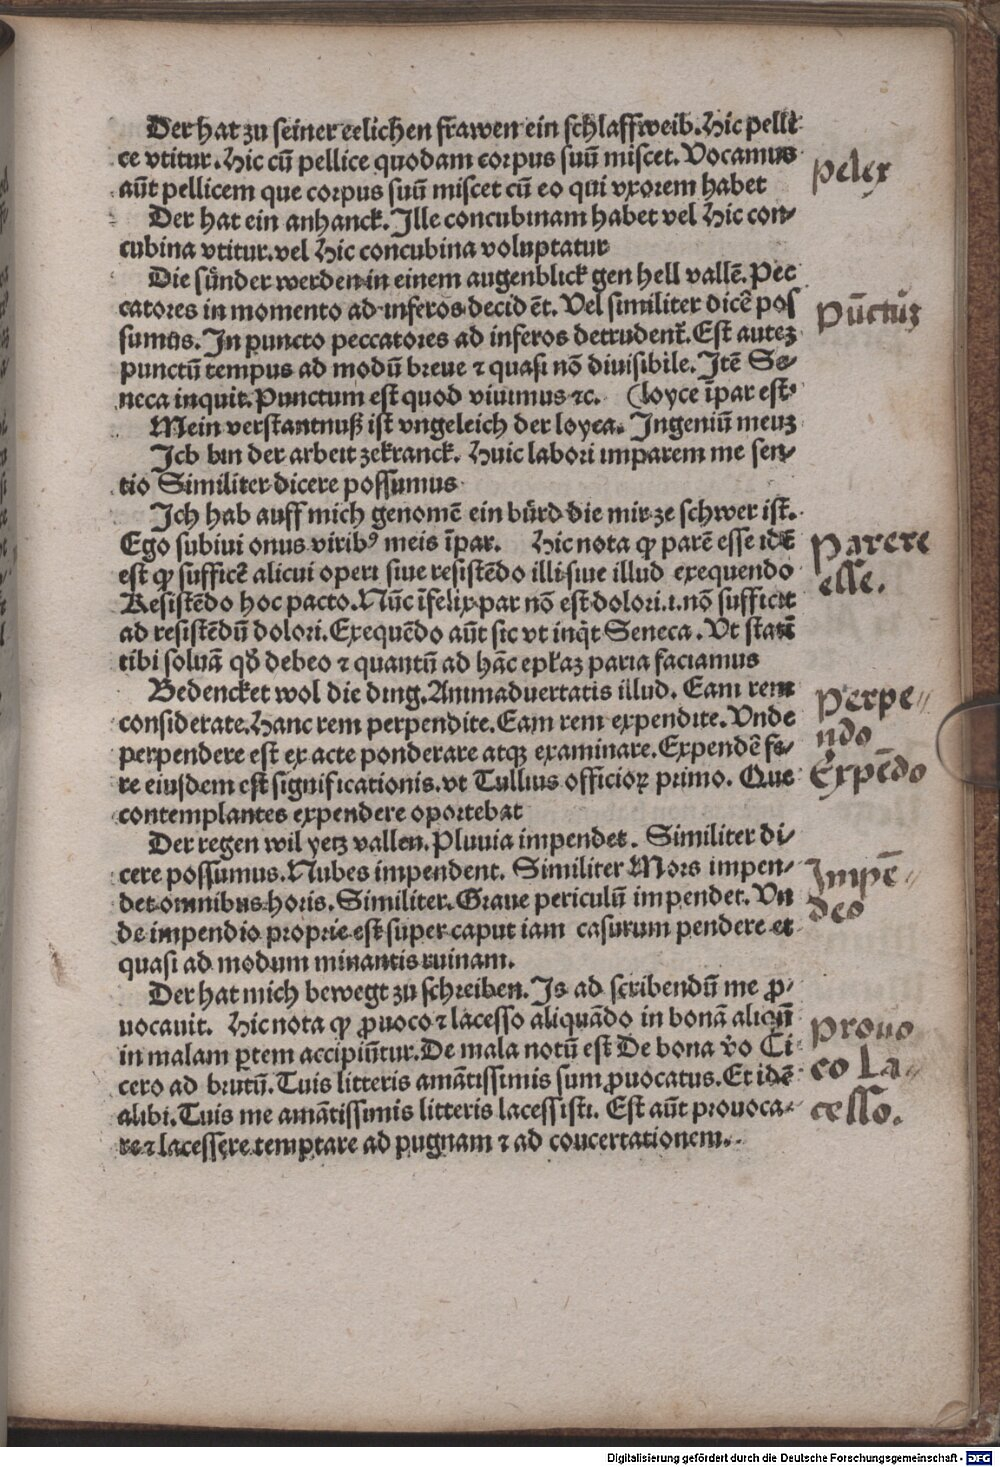 Der hat zu seiner eelichen frawen ein schlaffweib. Hic pelli
ce vtitur. Hic cū pellice quodam corpus suū miscet. Vocamus
aūt pellicem que corpus suū miscet cū eo qui vxorem habet
pelex
Der hat ein anhanck. Ille concubinam habet vel Hic con⸗
cubina vtitur. vel Hic concubina voluptatur
Die sünder werden in einem augenblick gen hell vallē. Pec
catores in momento ad inferos decidēt. Vel similiter dicē pos
sumus. In puncto peccatores ad inferos detrudent᷑. Est autez
pūctuʒ
punctū tempus ad modū breue ⁊ quasi nō diuisibile. Itē Se⸗
neca inquit. Punctum est quod viuimus ⁊c. (loyce īpar est
Mein verstantnuß ist vngeleich der loyca. Ingeniū meuʒ
Ich bin der arbeit ze kranck. Huic labori imparem me sen⸗
tio Similiter dicere possumus
Ich hab auff mich genomē ein bürd die mir ze schwer ist.
Ego subiui onus viribꝰ meis īpar. Hic nota ꝙ parē esse idē
est ꝙ sufficē alicui operi siue resistēdo illi siue illud exequendo
parere
esse.
Resistēdo hoc pacto. Nūc īfelix par nō est dolori .i. nō sufficit
ad resistēdū dolori. Exequēdo aūt sic vt inq̇t Seneca. Vt statī
tibi soluā qď debeo ⁊ quantū ad hāc epłaʒ paria faciamus
Bedencket wol die ding. Animaduertatis illud. Eam rem
considerate. Hanc rem perpendite. Eam rem expendite. Vnde
perpendere est ex acte ponderare atqꝫ examinare. Expendē fe⸗
re eiusdem est significationis. vt Tullius officioꝝ primo. Que
contemplantes expendere oportebat
perpe⸗
ndo
Expēdo
Der regen wil yetz vallen. Pluuia impendet. Similiter di⸗
cere possumus. Nubes impendent. Similiter Mors impen⸗
det omnibus horis. Similiter. Graue periculū impendet. Vn
de impendio proprie est super caput iam casurum pendere et
quasi ad modum minantis ruinam.
Impē⸗
deo
Der hat mich bewegt zu schreiben. Is ad scribendū me ꝓ⸗
uocauit. Hic nota ꝙ ꝓuoco ⁊ lacesso aliquādo in bonā aliqn̄
in malam ꝑtem accipiūtur. De mala notū est De bona v̊o Ci
cero ad brutū. Tuis litteris amātissimis sum ꝓuocatus. Et idē
alibi. Tuis me amātissimis litteris lacessisti. Est aūt prouoca⸗
re ⁊ lacessere temptare ad pugnam ⁊ ad concertationem.
prouo
co La⸗
cesso.
Digitalisierung gefördert durch die Deutsche Forschungsgemeinschaft - DFG